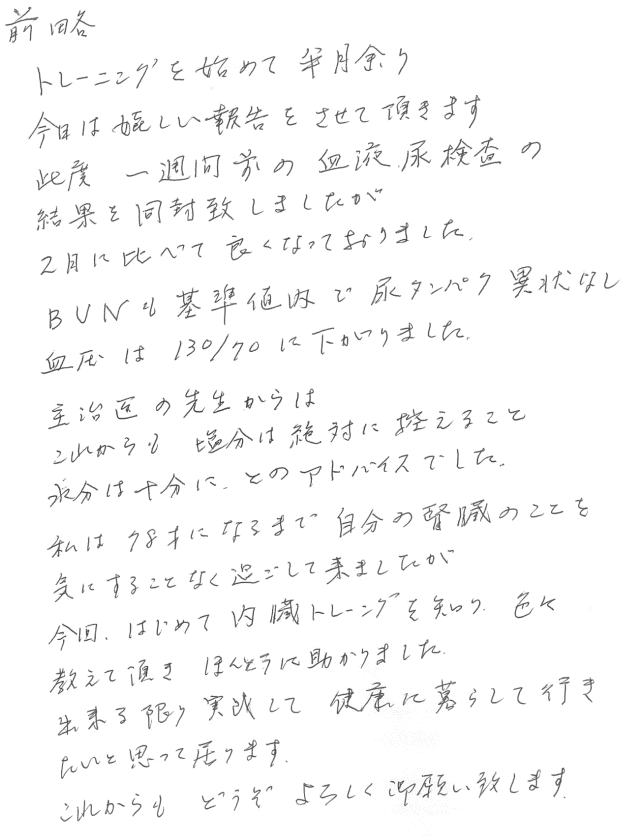 前略
トレーニングを始めて半月余り
今日は嬉しい報告をさせて頂きます
此度 一週間前の血液、尿検査の
結果を同封致しましたが
2月に比べて良くなっておりました。
BUNも基準値内で尿タンパク異状なし
血圧は130/70に下がりました。
主治医の先生からは
これからも 塩分は絶対に控えること
水分は十分に、とのアドバイスでした。
私は78才になるまで自分の腎臓のことを
気にすることなく過ごして来ましたが
今回、はじめて内臓トレーニングを知り、色々
教えて頂き ほんとうに助かりました。
出来る限り実践して 健康に暮らして行き
たいと思って居ります。
これからも どうぞ よろしく御願い致します。